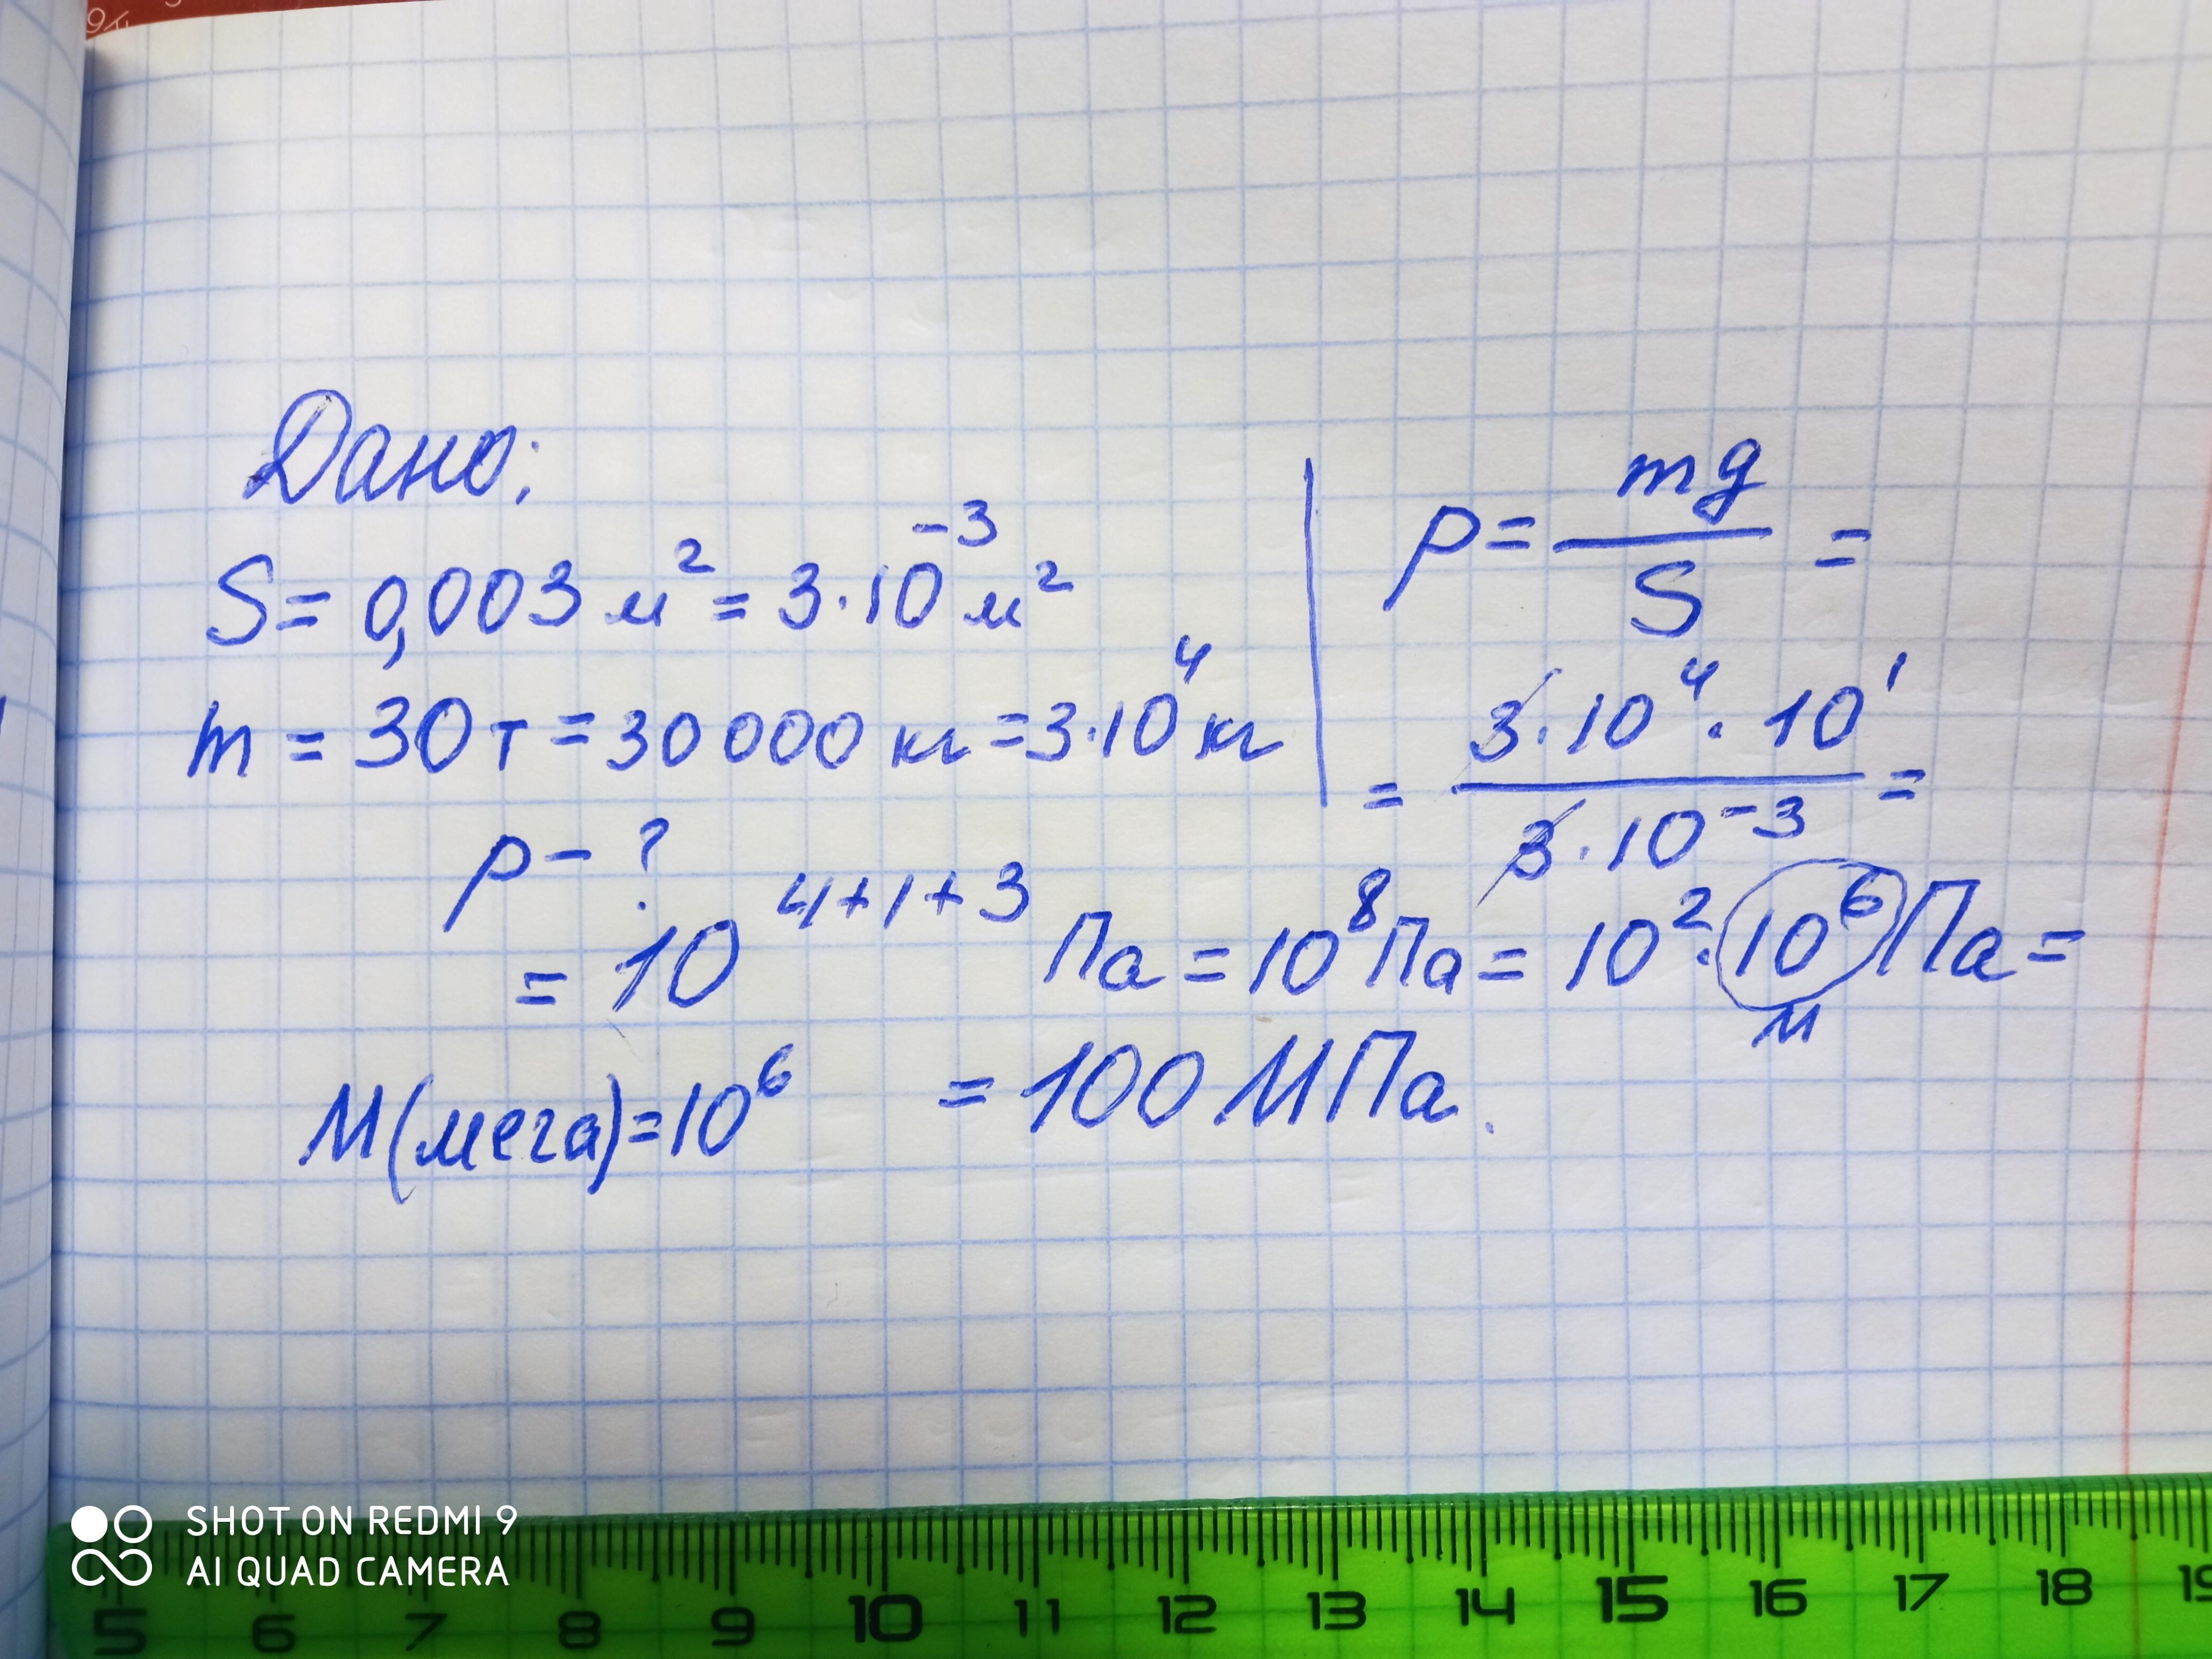 Дано:
S = 0,003 м² = 3·10⁻³ м²
m = 30 т = 30 000 кг = 3·10⁴ кг
p - ?
p = mg / S =
= 3·10⁴·10¹ / 3·10⁻³ =
= 10⁴⁺¹⁺³ Па = 10⁸ Па = 10²·10⁶ Па =
М
М (мега) = 10⁶
= 100 МПа.
SHOT ON REDMI 9
AI QUAD CAMERA
5 6 7 8 9 10 11 12 13 14 15 16 17 18 19